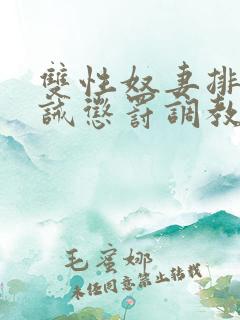 雙性奴妻排
誡懲罰調教
毛蛮娜
未经同意禁止转载